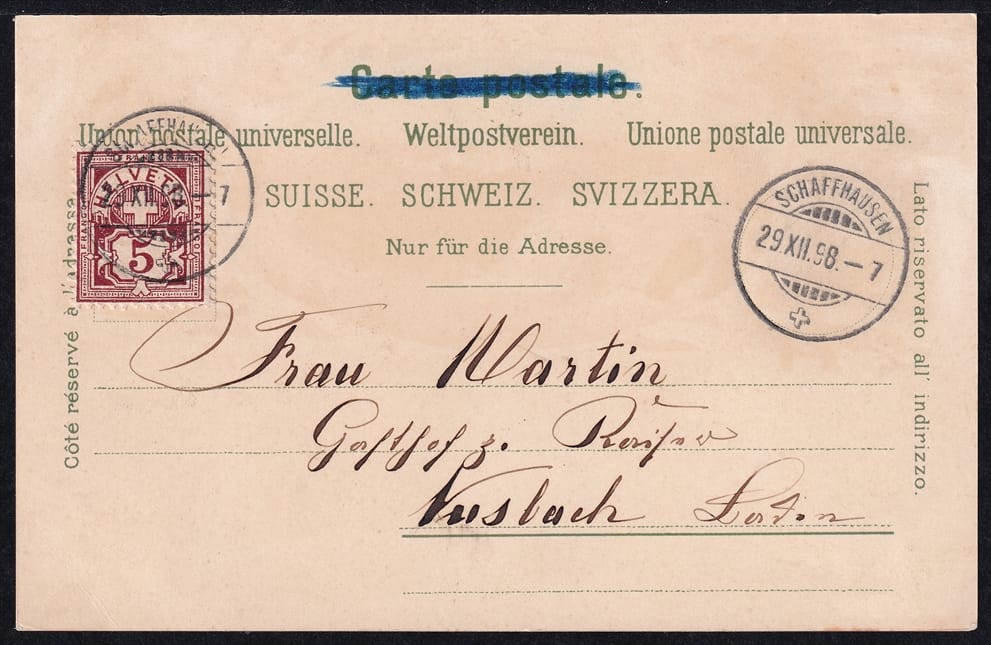 Carte postale.
Union postale universelle. Weltpostverein. Unione postale universale.
SUISSE. SCHWEIZ. SVIZZERA.
Nur für die Adresse.
Côté réservé à l'adresse
Lato riservato all' indirizzo.
FRANCO
HELVETIA
FRANCO
FRANCO
5
SCHAFFHAUSEN
XII
– 7
SCHAFFHAUSEN
29.XII.98.–7
Frau Martin
Gasthof z.
Baden